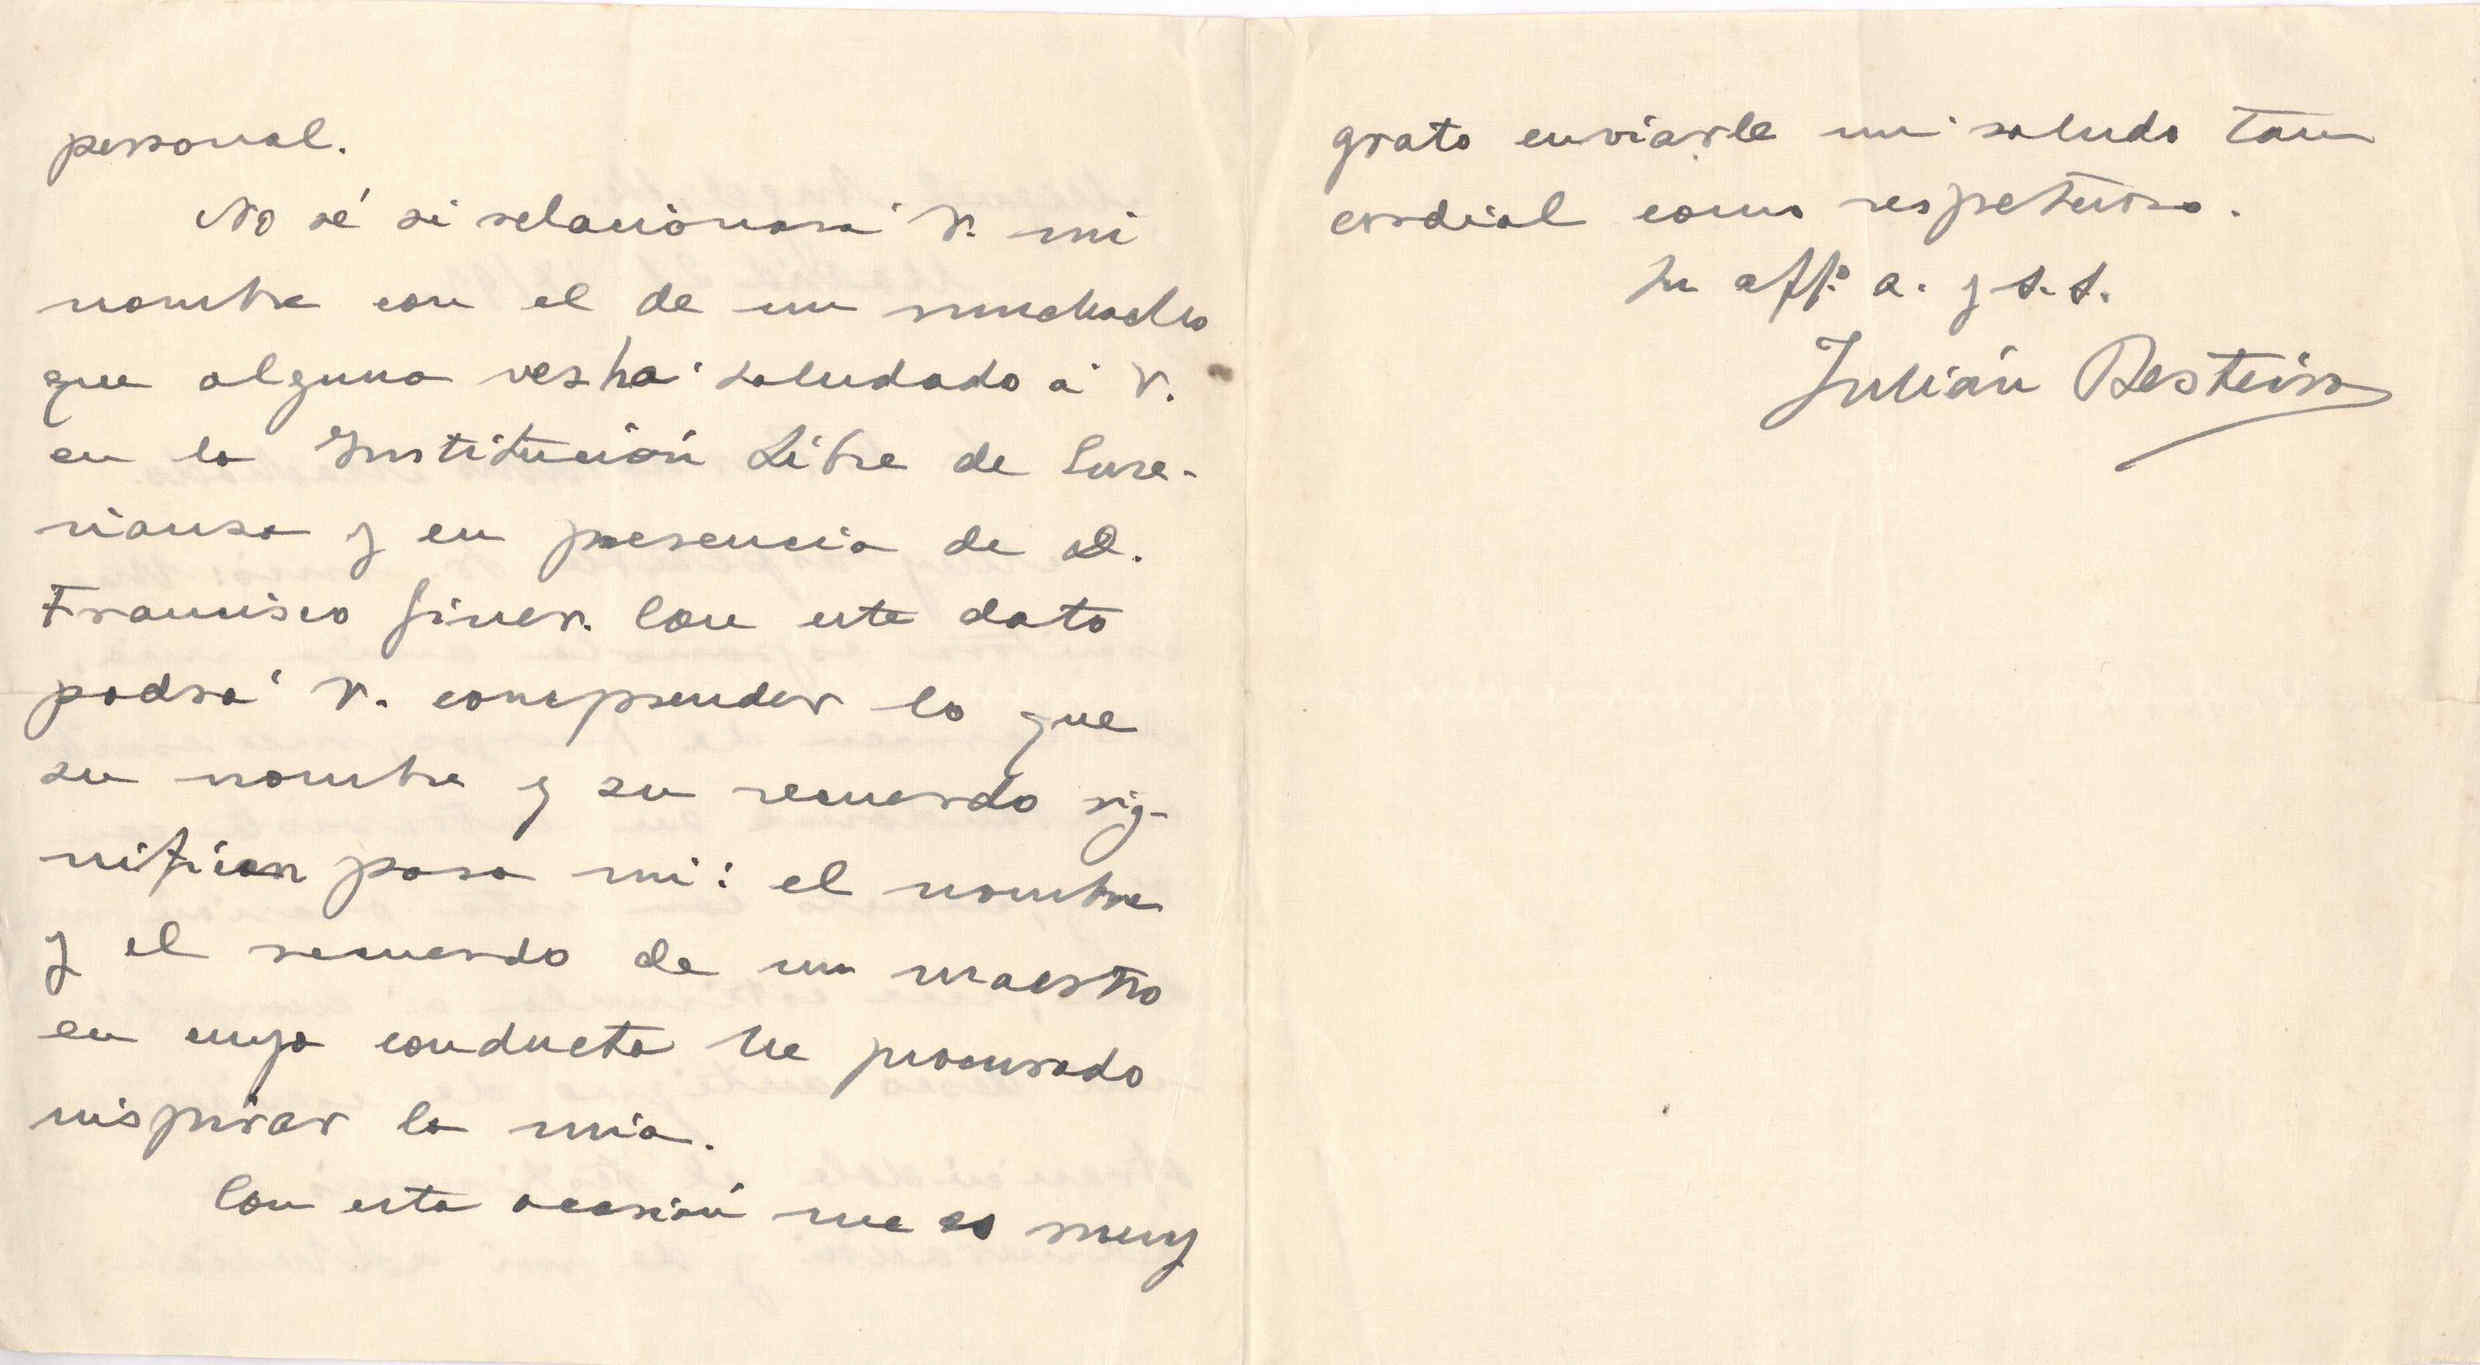 personal.
No sé si relacionará V. mi
nombre con el de un muchacho
que alguna vez ha saludado á V.
en la Institución Libre de Ense-
ñanza y en presencia de D.
Francisco Giner. Con este dato
podrá V. comprender lo que
su nombre y su recuerdo sig-
nifican para mi: el nombre
y el recuerdo de un maestro
en cuya conducta he procurado
inspirar la mia.
Con esta ocasión me es muy
grato enviarle mi saludo tan
cordial como respetuoso.
Su affº a. y s.s.
Julián Besteiro